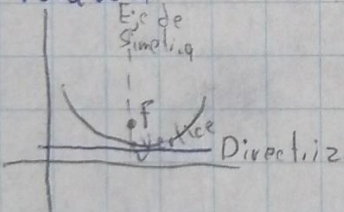 Eje de
Simetria
F
Vertice
Directriz